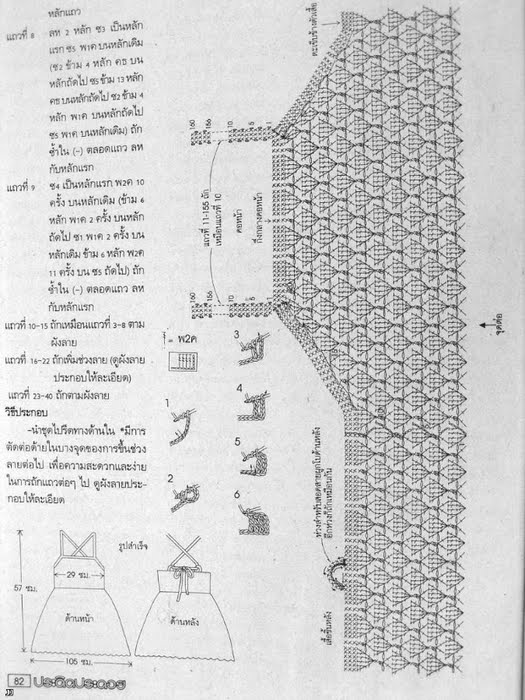 หลักแถว
แถวที่ 8 ลห 2 หลัก ซ3 เป็นหลัก
แรก ซ5 พ1ค บนหลักเดิม
(ซ2 ข้าม 4 หลัก คธ บน
หลักถัดไป ซ5 ข้าม 13 หลัก
คธ บนหลักถัดไป ซ2 ข้าม 4
หลัก พ1ค บนหลักถัดไป
ซ5 พ1ค บนหลักเดิม) ถัก
ซ้ำใน (-) ตลอดแถว ลห
กับหลักแรก
แถวที่ 9 ซ4 เป็นหลักแรก พ2ค 10
ครั้ง บนหลักเดิม (ข้าม 6
หลัก พ1ค 2 ครั้ง บนหลัก
ถัดไป ซ1 พ1ค 2 ครั้ง บน
หลักเดิม ข้าม 6 หลัก พ2ค
11 ครั้ง บน ซ5 ถัดไป) ถัก
ซ้ำใน (-) ตลอดแถว ลห
กับหลักแรก
แถวที่ 10-15 ถักเหมือนแถวที่ 3-8 ตาม
ผังลาย
แถวที่ 16-22 ถักเพิ่มช่วงลาย (ดูผังลาย
ประกอบให้ละเอียด)
แถวที่ 23-40 ถักตามผังลาย
วิธีประกอบ
-นำชุดไปรีดทางด้านใน *มีการ
ตัดต่อด้ายในบางจุดของการขึ้นช่วง
ลายต่อไป เพื่อความสะดวกและง่าย
ในการถักแถวต่อๆ ไป ดูผังลายประ-
กอบให้ละเอียด
รูปสำเร็จ
29 ซม.
57 ซม.
ด้านหน้า
ด้านหลัง
105 ซม.
82 ประดิดประดอย
= พ2ค
1
2
3
4
5
6
160
156
10
5
1
แถวที่ 11-155 ถัก
เหมือนแถวที่ 10
คอหน้า
กึ่งกลางคอหน้า
160
156
10
5
1
ตะเข็บข้างตัวเสื้อ
จุดต่อ
ห่วงสำหรับสอดสายผูกโบด้านหลัง
อีกห่วงก็ถักเหมือนกัน